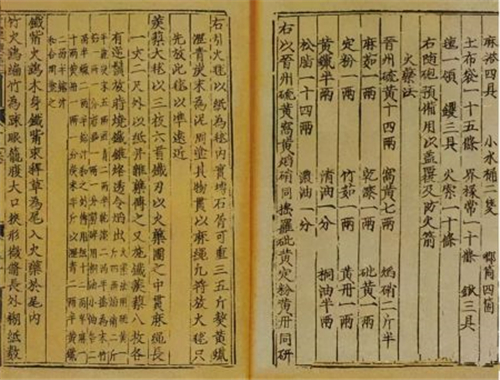 麻搭四具 小水桶二隻 唧筒四箇
土布袋一十五條 界樣帶一十條 鍬三具
氊一領 钁三具 火索一十條
右隨砲預備用以蓋覆及防火箭
火藥法
晉州硫黃十四兩 窩黃七兩 焰硝二斤半
麻茹一兩 乾漆一兩 砒黃一兩
定粉一兩 竹茹一兩 黃丹一兩
黃蠟半兩 清油一分 桐油半兩
松脂一十四兩 濃油一分
右以晉州硫黃窩黃焰硝同擣羅砒黃定粉黃丹同研
右引火毬以紙為毬內實塼石屑可重三五斤熬黃蠟
瀝青炭末為泥周塗其物貫以麻繩凡將放火毬只
先放此毬以準遠近
蒺藜火毬以三枝六首鐵刃以火藥團之中貫麻繩長
一丈二尺外以紙并雜藥傅之又施鐵蒺藜八枚各
有逆鬚放時燒鐵錐烙透令焰出
鐵嘴火鷂木身鐵嘴束稈草為尾入火藥於尾內
竹火鷂編竹為疎眼籠腹大口狹形微脩長外糊紙數